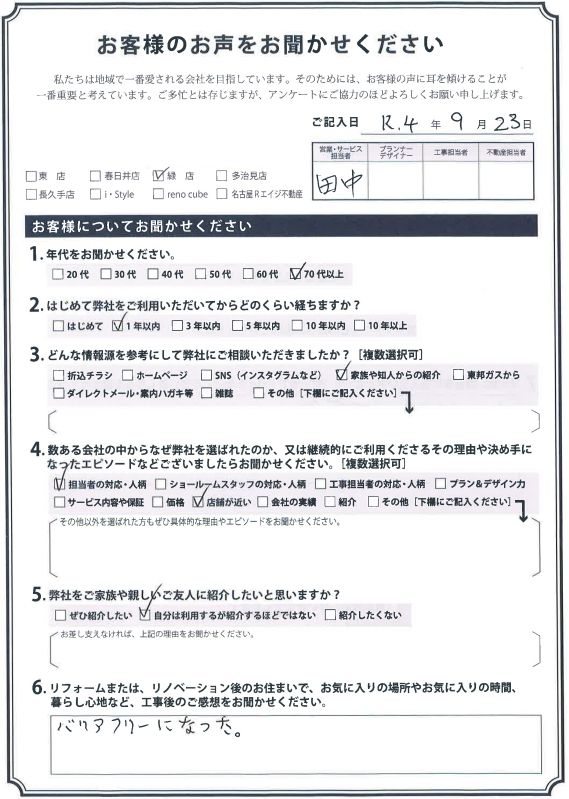 お客様のお声をお聞かせください
私たちは地域で一番愛される会社を目指しています。そのためには、お客様の声に耳を傾けることが
一番重要と考えています。ご多忙とは存じますが、アンケートにご協力のほどよろしくお願い申し上げます。
ご記入日 R.4 年 9 月 23 日
営業・サービス担当者 プランナーデザイナー 工事担当者 不動産担当者
田中
□東 店 □春日井店 ☑緑 店 □多治見店
□長久手店 □i・Style □reno cube □名古屋Rエイジ不動産
お客様についてお聞かせください
1. 年代をお聞かせください。
□20代 □30代 □40代 □50代 □60代 ☑70代以上
2. はじめて弊社をご利用いただいてからどのくらい経ちますか?
□はじめて ☑1年以内 □3年以内 □5年以内 □10年以内 □10年以上
3. どんな情報源を参考にして弊社にご相談いただきましたか?[複数選択可]
□折込チラシ □ホームページ □SNS(インスタグラムなど) ☑家族や知人からの紹介 □東邦ガスから
□ダイレクトメール・案内ハガキ等 □雑誌 □その他[下欄にご記入ください]
4. 数ある会社の中からなぜ弊社を選ばれたのか、又は継続的にご利用くださるその理由や決め手に
なったエピソードなどございましたらお聞かせください。[複数選択可]
☑担当者の対応・人柄 □ショールームスタッフの対応・人柄 □工事担当者の対応・人柄 □プラン&デザイン力
□サービス内容や保証 □価格 ☑店舗が近い □会社の実績 □紹介 □その他[下欄にご記入ください]
その他以外を選ばれた方もぜひ具体的な理由やエピソードをお聞かせください。
5. 弊社をご家族や親しいご友人に紹介したいと思いますか?
□ぜひ紹介したい ☑自分は利用するが紹介するほどではない □紹介したくない
お差し支えなければ、上記の理由をお聞かせください。
6. リフォームまたは、リノベーション後のお住まいで、お気に入りの場所やお気に入りの時間、
暮らし心地など、工事後のご感想をお聞かせください。
バリアフリーになった。